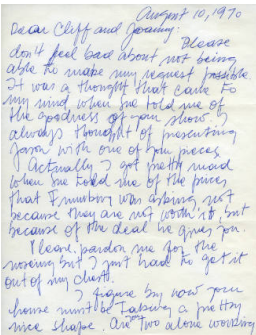 August 10, 1970
Dear Cliff and Joanny:
Please
don't feel bad about not being
able to make my request possible
It was a thought that came to
my mind when she told me of
the goodness of your show. I
always thought of presenting
Jason with one of your pieces
Actually I got pretty mad
when she told me of the prices
that was asking not
because they are not worth it, but
because of the deal he gives you.
Please pardon me for the
but I just had to get it
out of my chest.
I figure by now your
house must be taking a pretty
nice shape. Are two alone working